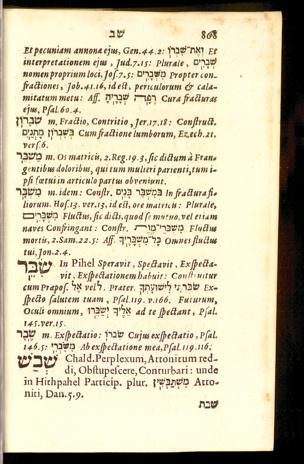 שב 868
Et pecuniam annonæ ejus, Gen. 44.2: וְאֶת־שִׁבְרוֹ Et
interpretationem ejus, Jud. 7.15: Plurale, שְׁבָרִים
nomen proprium loci, Jos. 7.5: מִשְּׁבָרִים Propter con-
fractiones, Job. 41.16, id est, periculorum & cala-
mitatum metu: Aff. רְפָה שְׁבָרֶיהָ Cura fracturas
ejus, Psal. 60.4.
שִׁבָּרוֹן m, Fractio, Contritio, Jer. 17.18: Construct.
בְּשִׁבְרוֹן מָתְנַיִם Cum fractione lumborum, Ezech. 21.
vers. 6.
מַשְׁבֵּר m. Os matricis, 2. Reg. 19.3, sic dictum à Fran-
gentibus doloribus, qui tum mulieri parienti, tum i-
psi fœtui in articulo partus obveniunt.
מִשְׁבָּר m. idem: Constr. בְּמִשְׁבַּר בָּנִים In fractura fi-
liorum. Hos. 13. ver. 13, id est, ore matricis: Plurale,
מִשְׁבָּרִים Fluctus, sic dicti, quod se mutuo, vel etiam
naves Confringant: Constr. מִשְׁבְּרֵי־מָוֶת Fluctus
mortis, 2. Sam. 22.5: Aff. כָּל־מִשְׁבָּרֶיךָ Omnes fluctus
tui, Jon. 2.4.
שִׂבֵּר In Pihel Speravit, Spectavit, Exspecta-
vit, Exspectationem habuit: Construitur
cum Præpos. אֶל vel לְ. Præter. שִׂבַּרְתִּי לִישׁוּעָתְךָ Ex-
specto salutem tuam, Psal. 119. v. 166. Futurum,
Oculi omnium, אֵלֶיךָ יְשַׂבֵּרוּ ad te spectant, Psal.
145. ver. 15.
שֵׂבֶר m. Exspectatio: שִׂבְרוֹ Cujus exspectatio, Psal.
146.5: מִשִּׂבְרִי Ab exspectatione mea, Psal. 119.116;
שְׁבַשׁ Chald. Perplexum, Attonitum red-
di, Obstupescere, Conturbari: unde
in Hithpahel Particip. plur. מִשְׁתַּבְּשִׁין Atto-
niti, Dan. 5.9.
שבת